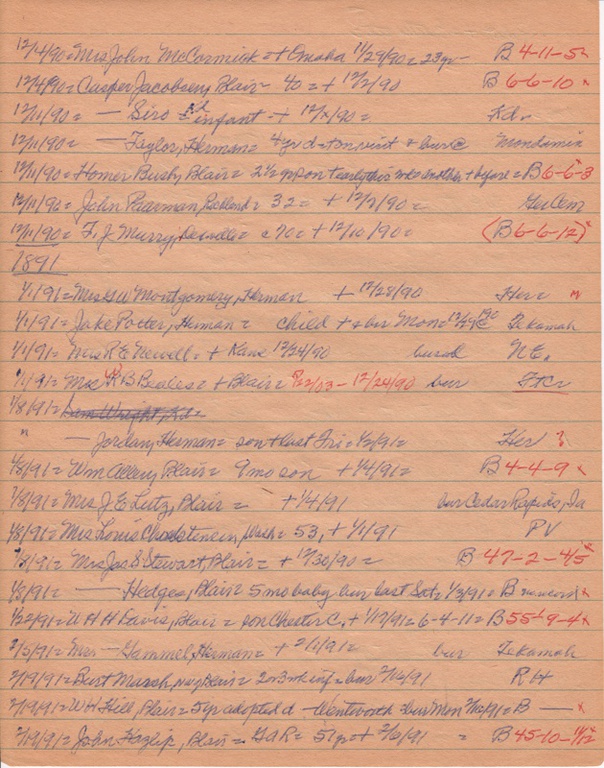 12/4/90= Mrs John McCormick = + Omaha 11/29/90 = 23 yr - B 4-11-5
12/4/90= Casper Jacobsen, Blair - 40 = + 12/2/90 B 6-6-10 x
12/11/90= — infant - + = Kd.
12/11/90= — Taylor, Herman = 4 yr d + on visit + bur @ Mondamin
12/11/90= Homer Bush, Blair = 2 1/2 yr son + early this wk another + before = B 6-6-3
12/11/90= John = 32 = + 12/7/90 = Cem
12/11/90= F. J. Murry, = c 70 = + 12/10/90 = (B 6-6-12) x
1891
1/1/91= Mrs G W Montgomery, Herman + 12/28/90 Her =
1/1/91= Jake Potter, Herman = child + + bur Mon = Tekamah
1/1/91= Mrs R E Newell = + Kane 12/24/90 burial NE.
1/1/91= Mrs R B Beales = + Blair = - 12/24/90 bur FtCr
1/8/91= Sam Wright, Kd =
" — Jordan, Herman = son + last Fri = 1/2/91 = Her ?
1/8/91= Wm Allen, Blair = 9 mo son + 1/4/91 = B 4-4-9 x
1/8/91= Mrs J. E Lutz, Blair = + 1/4/91 bur Cedar Rapids, Ia
1/8/91= Mrs Louis Christensen, = 53, + 1/1/91 PV
1/8/91= Mrs Jas S Stewart, Blair = + 12/30/90 = B 47-2-4/5 x
1/8/91= — Hedges, Blair = 5 mo baby bur last Sat = 1/3/91 = B x
1/22/91= W H H Davis, Blair = son Chester C. + 1/17/91 = 6-4-11 = B 55 1/2 9-4 x
2/5/91= Mrs — Gammel, Herman = + 2/1/91 = bur Tekamah
2/19/91= Burt Marsh, Blair = 2 or 3 wk inf = bur 2/16/91 RH
2/19/91= W H Hill, Blair = 5 yr adopted d - Wentworth = bur Mon 2/16/91 = B — x
2/19/91= John Hazlip, Blair = GAR = 51 yr + 2/16/91 = B 45-10-11/12 x